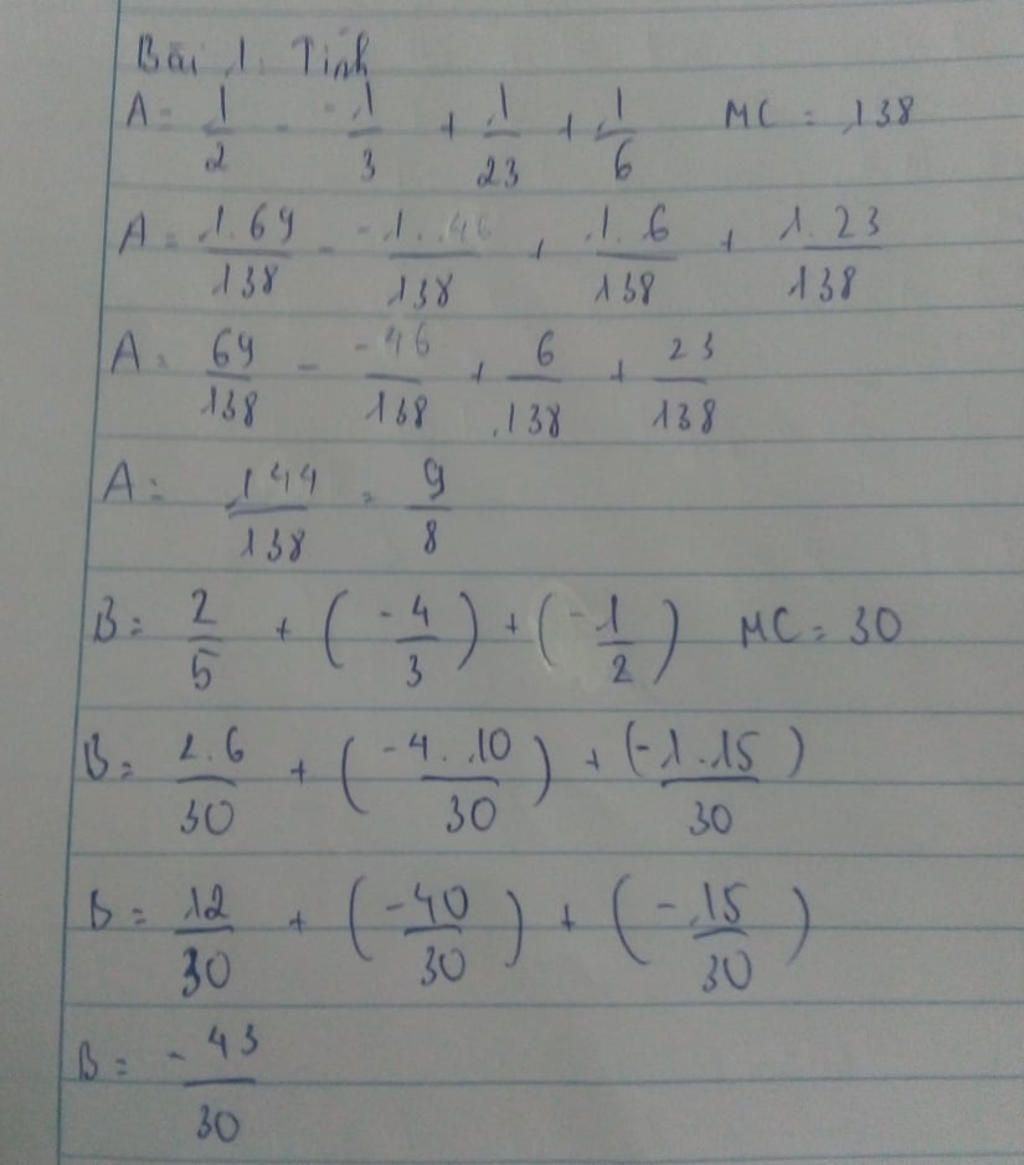 Bài 1. Tính
A = 1/2 - -1/3 + 1/23 + 1/6 MC = 138
A = 1.69/138 - -1.46/138 + 1.6/138 + 1.23/138
A = 69/138 - -46/138 + 6/138 + 23/138
A = 144/138 = 9/8
B = 2/5 + (-4/3) + (-1/2) MC = 30
B = 2.6/30 + (-4.10/30) + (-1.15)/30
B = 12/30 + (-40/30) + (-15/30)
B = -43/30